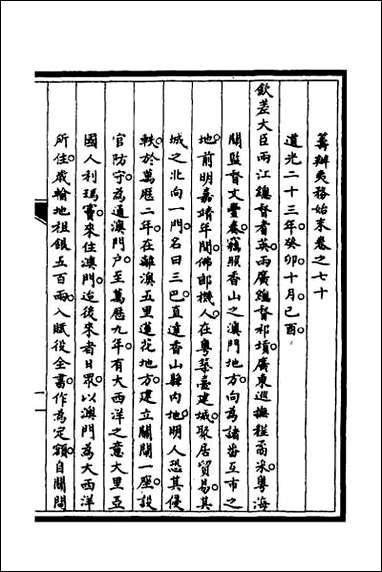 籌辦夷務始末卷之七十
道光二十三年癸卯十月己酉
欽差大臣兩江總督耆英兩廣總督祁𡎴廣東巡撫程矞采粵海
關監督文豐奏竊照香山之澳門地方向為諸番互市之
地前明嘉靖年間佛郎機人在粵築臺建城聚居貿易其
城之北向一門名曰三巴直達香山縣內地明人恐其侵
軼於萬歷二年在離澳五里蓮花地方建立關閘一座設
官防守為通澳門户至萬歷九年有大西洋之意大里亞
國人利瑪竇來住澳門迨後來者日眾以澳門為大西洋
所住歲輸地租銀五百兩入賦役全書作為定額自關閘